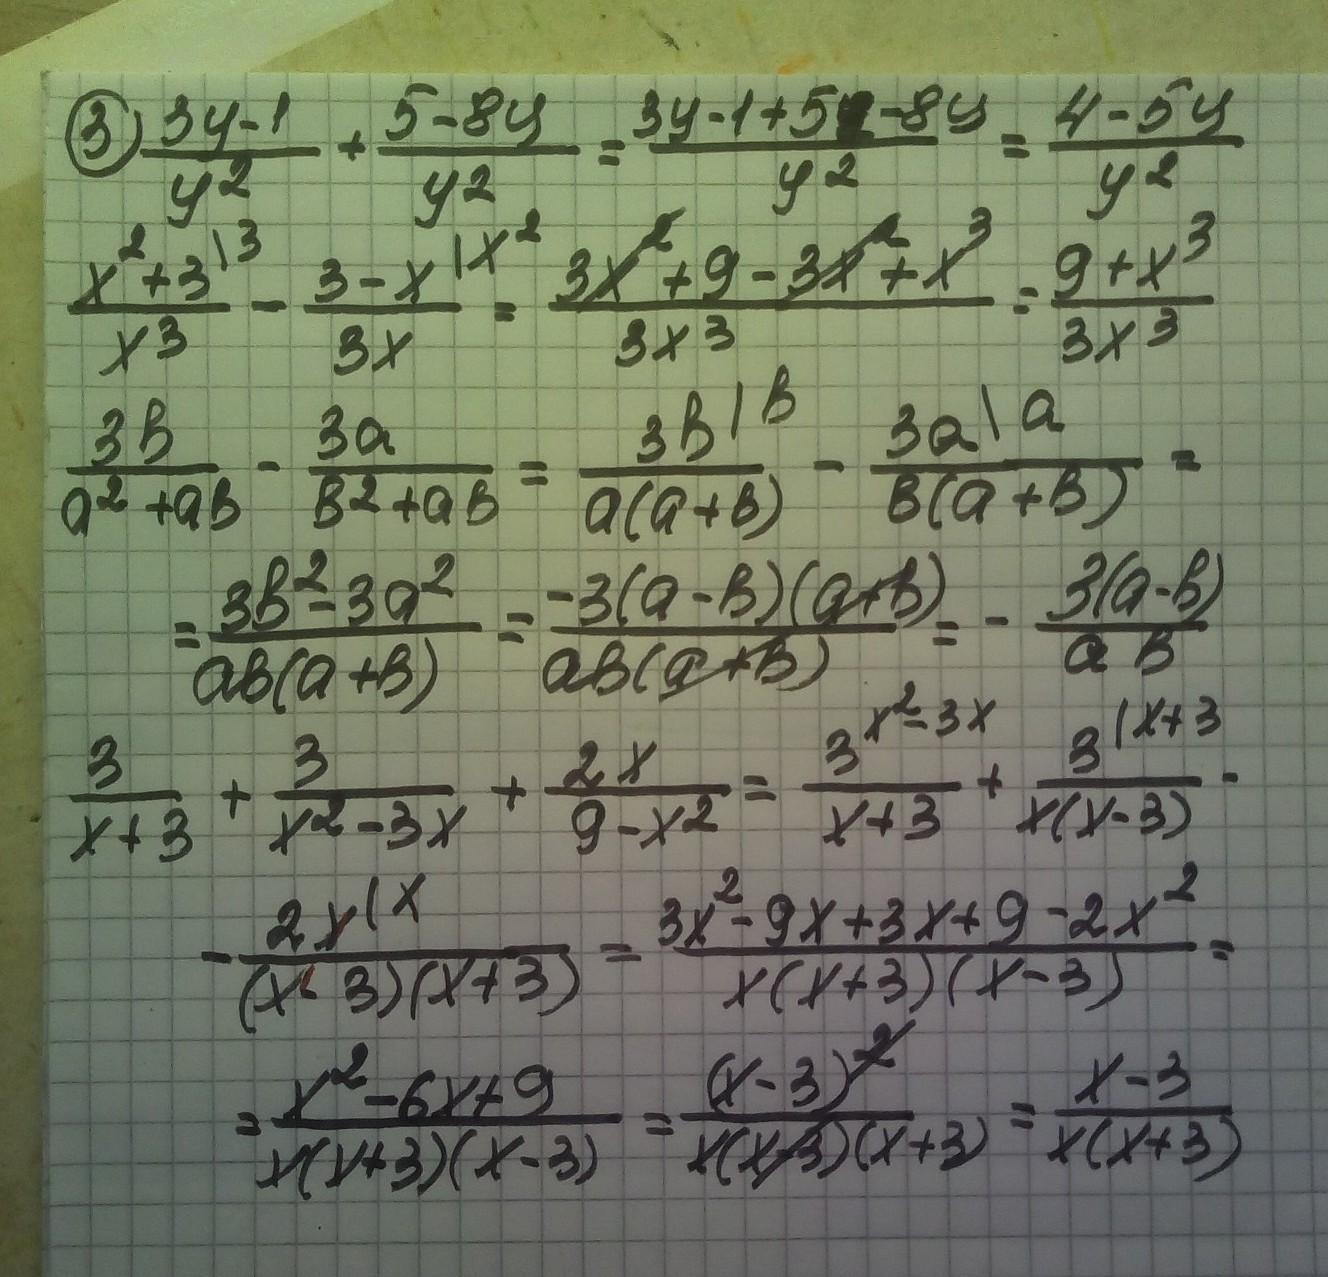 ③ (3y-1)/y² + (5-8y)/y² = (3y-1+5-8y)/y² = (4-5y)/y²
(x²+3)\3/x³ - (3-x)|x²/3x = (3x²+9-3x²+x³)/3x³ = (9+x³)/3x³
3в/(a²+aв) - 3a/(в²+aв) = 3в|в/a(a+в) - 3a\a/в(a+в) =
= (3в²-3a²)/aв(a+в) = -3(a-в)(a+в)/aв(a+в) = - 3(a-в)/aв
3/(x+3) + 3/(x²-3x) + 2x/(9-x²) = 3^(x²-3x)/(x+3) + 3|x+3/x(x-3) -
- 2x|x/(x-3)(x+3) = (3x²-9x+3x+9-2x²)/x(x+3)(x-3) =
= (x²-6x+9)/x(x+3)(x-3) = (x-3)²/x(x-3)(x+3) = (x-3)/x(x+3)